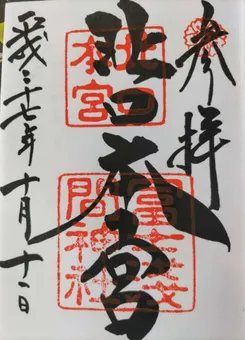 参拝
北口本宮
平成二十七年十月十一日
北口
本宮
冨士浅
間神社